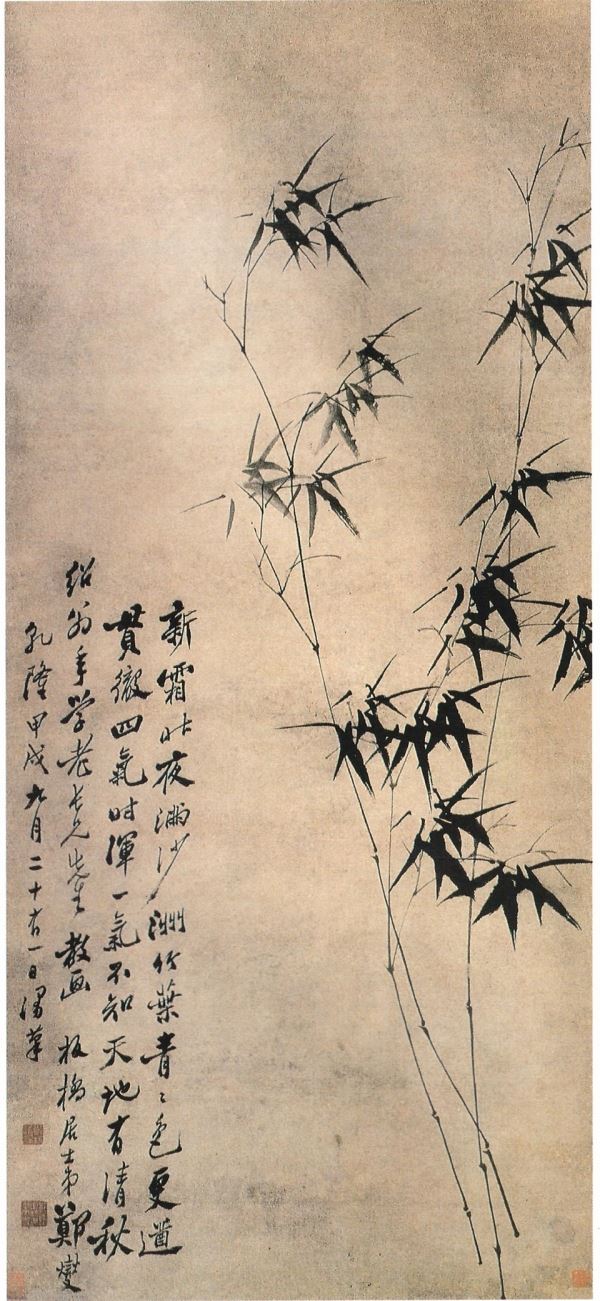 新霜昨夜滿沙洲竹葉青〻色更遒
貫徹四氣时渾一氣不知天地有清秋
绍翁年学老长兄先生教画板橋居士弟鄭燮
乾隆甲戌九月二十有一日漫筆